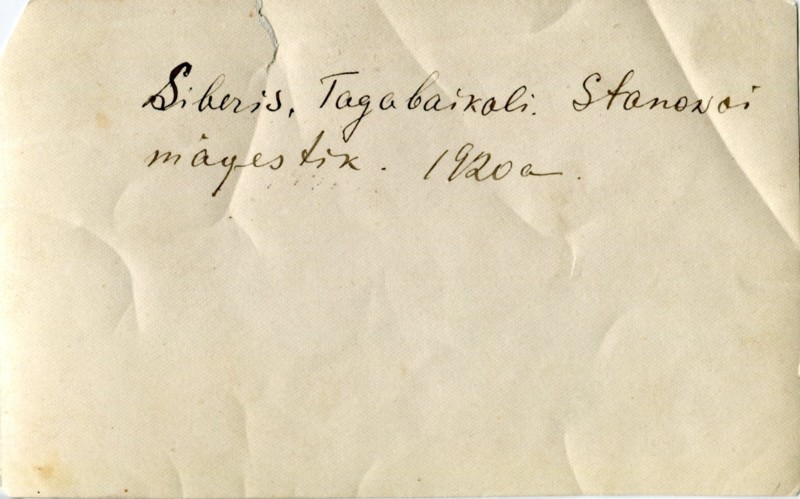 Siberis, Tagabaikali. Stanovoi
mäyestik. 1920a.